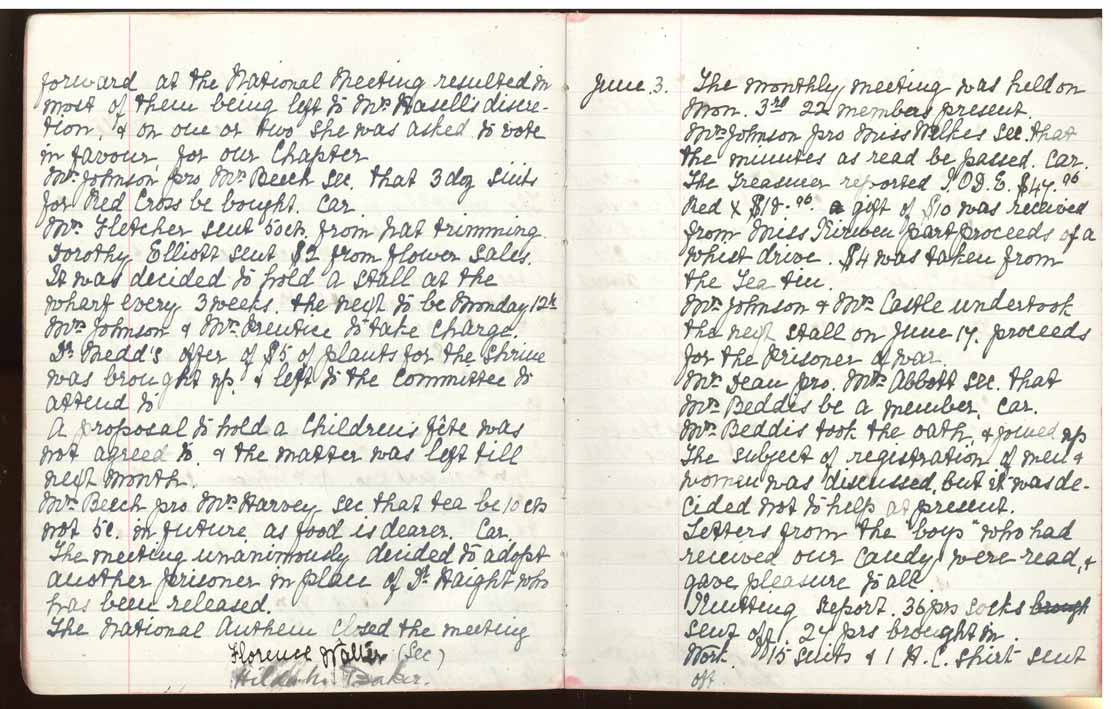 forward at the National Meeting resulted in
most of them being left to Mrs Hasell's discre-
tion, & on one or two she was asked to vote
in favour for our Chapter
Mrs Johnson pro Mrs Beech sec. that 3 doz suits
for Red Cross be bought. Car.
Mrs Fletcher sent 50cts from hat trimming
Dorothy Elliott sent $2 from flower sales.
It was decided to hold a stall at the
wharf every 3 weeks. the next to be Monday 12th
Mrs Johnson & Mrs Prentice to take charge.
Dr Medd's offer of $5 of plants for the Shrine
was brought up & left to the committee to
attend to
A proposal to hold a Children's fête was
not agreed to. & the matter was left till
next month.
Mrs Beech pro Mrs Harvey sec that tea be 10cts
not 5c. in future as food is dearer. Car.
The meeting unanimously decided to adopt
another prisoner in place of Dr Haight who
has been released.
The National Anthem closed the meeting
Florence Walter (Sec)
Hilda M. Baker.
June. 3. The monthly meeting was held on
Mon. 3rd 22 members present.
Mrs Johnson pro Miss Wilkes sec. that
the minutes as read be passed. Car.
The Treasurer reported I.O.D.E. $47.96
Red X $18.96 a gift of $10 was received
from Miss Kirwen part proceeds of a
whist drive. $4 was taken from
the Tea tin.
Mrs Johnson & Mrs Castle undertook
the next stall on June 17. proceeds
for the Prisoner of war
Mrs Dean pro. Mrs Abbott sec. that
Mrs Beddis be a member. Car.
Mrs Beddis took the oath, & joined up
The subject of registration of men &
women was discussed, but it was de-
cided not to help at present.
Letters from the "boys" who had
received our candy were read, &
gave pleasure to all.
Knitting Report. 36 prs socks brough
sent off. 24 prs brought in.
Work. 15 suits & 1 H.C. shirt sent
off